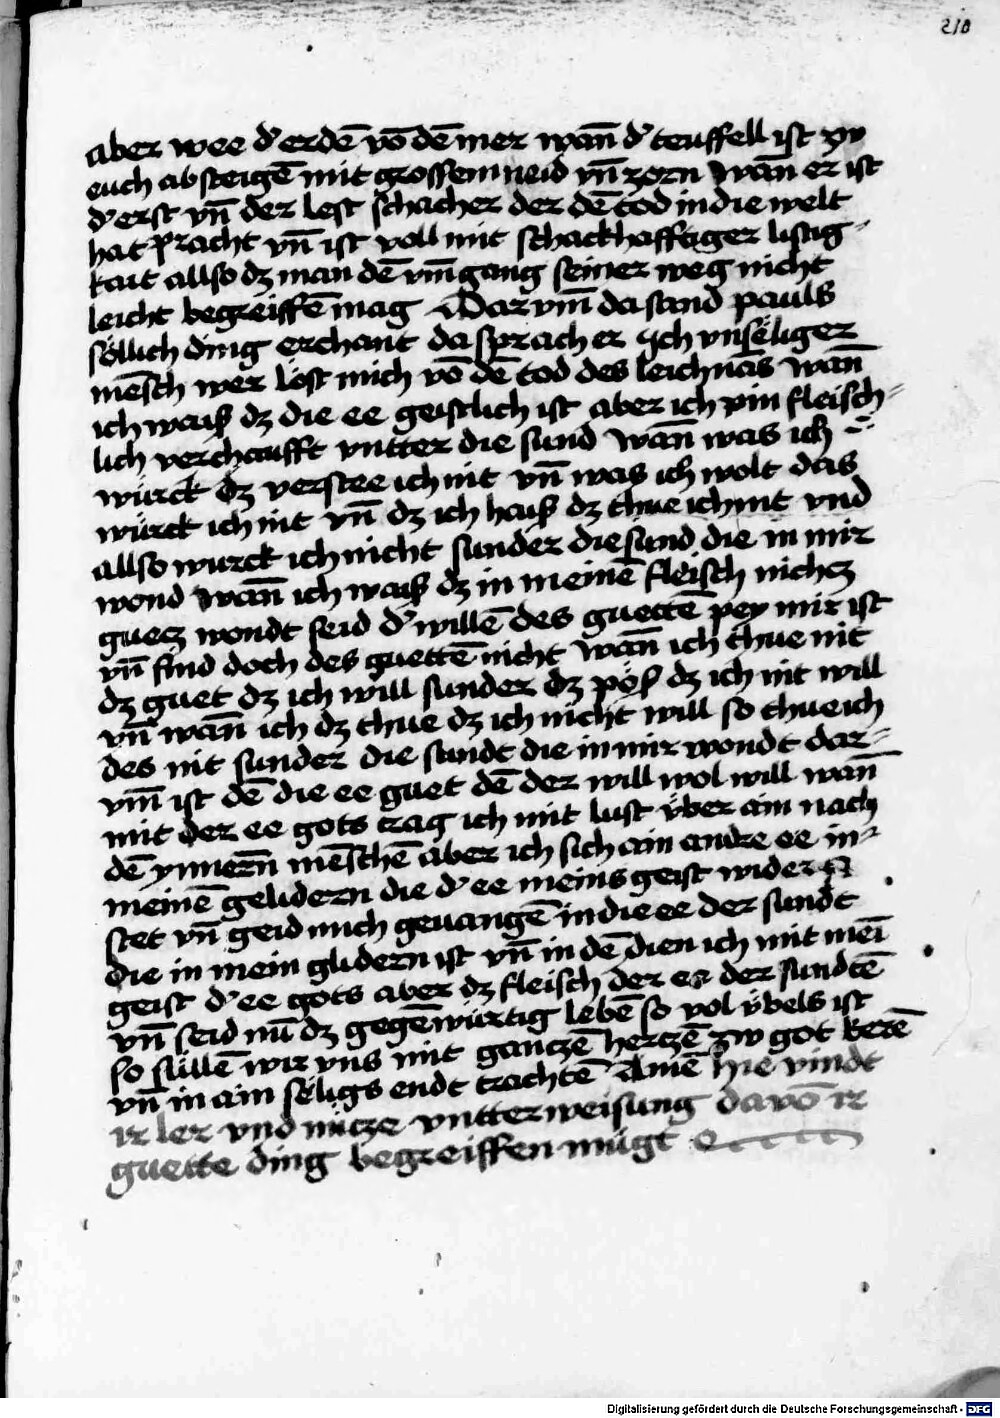 210
aber wee d' erdē vō dē mer wan̄ d' teuffell ist zw
euch absteigē mit grossem neid vn̄ zorn wan̄ er ist
d' erst vn̄ der lest schacher der dē tod in die welt
hat pracht vn̄ ist voll mit schackhafftiger listig-
kait allso dz man dē vm̄gang seiner weg nicht
leicht begreiffē mag Darvm̄ da sand pauls
söllich ding erchant da sprach er Ich vnsëliger
mēsch wer löst mich vō dē tod des leichnās wan̄
ich waiß dz die ee geistlich ist aber ich pin fleisch-
lich verchaufft vntter die sund wan̄ was ich
würck dz verstee ich nit vn̄ was ich wolt das
würck ich nit vn̄ dz ich haiß dz thue ich nit vnd
allso wurck ich nicht sunder die sund die in mir
wond wan̄ ich waiß dz in meinē fleisch nichcz
guecz wondt seid d' willē des guettē pey mir ist
vn̄ find doch des guettē nicht wan̄ ich thue nit
dz guet dz ich will sunder dz pöß dz ich nit will
vn̄ wan̄ ich dz thue dz ich nicht will so thue ich
des nit sunder die sundt die in mir wondt dar-
vm̄ ist dē die ee guet dē der will wol will wan̄
mit der ee gots trag ich mit lust über ain nach
dē ynnern̄ mēschē aber ich sich ain andre ee in
meinē gelidern die d' ee meins geist wider
stet vn̄ geid mich geuangē in die ee der sundt
die in mein glidern ist vn̄ in dē dien ich mit mei
geist d' ee gots aber dz fleisch der ee der sundtē
vn̄ seid nū dz gegēwürtig lebē so vol übels ist
so süllē wir vns mit ganczē herczē zw got kerē
vn̄ in ain sëligs endt trachtē Amē hie vindt
ir ler vnd nücze vntterweisung davō ir
guette ding begreiffen mügt
Digitalisierung gefördert durch die Deutsche Forschungsgemeinschaft - DFG